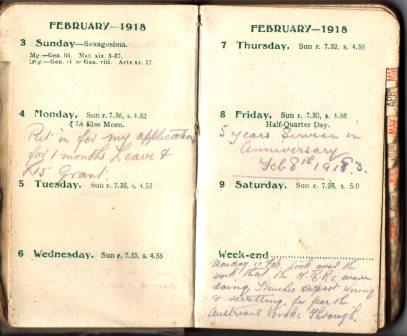 FEBRUARY—1918
3 Sunday—Sexagesima.
Mg.—Gen. iii. Mat. xix. 3-27.
Evg.—Gen. vi or Gen. viii. Acts xx. 17.
4 Monday. Sun r. 7.36, s. 4.52
7h 52m Morn.
Put in for my application
for 1 months Leave &
£15 Grant.
5 Tuesday. Sun r. 7.35, s. 4.53
6 Wednesday. Sun r. 7.33, s. 4.55
FEBRUARY—1918
7 Thursday. Sun r. 7.32, s. 4.56
8 Friday. Sun r. 7.30, s. 4.58
Half-Quarter Day.
5 years Service in
Anniversary
Feb 8th 1918
9 Saturday. Sun r. 7.28, s. 5.0
Week-end
Monday 11 Feb. Took over the
work that the R.E.s were
doing, Trenches Support
& for fear the
Austrians Broke Through.
MAR
APR
MAY